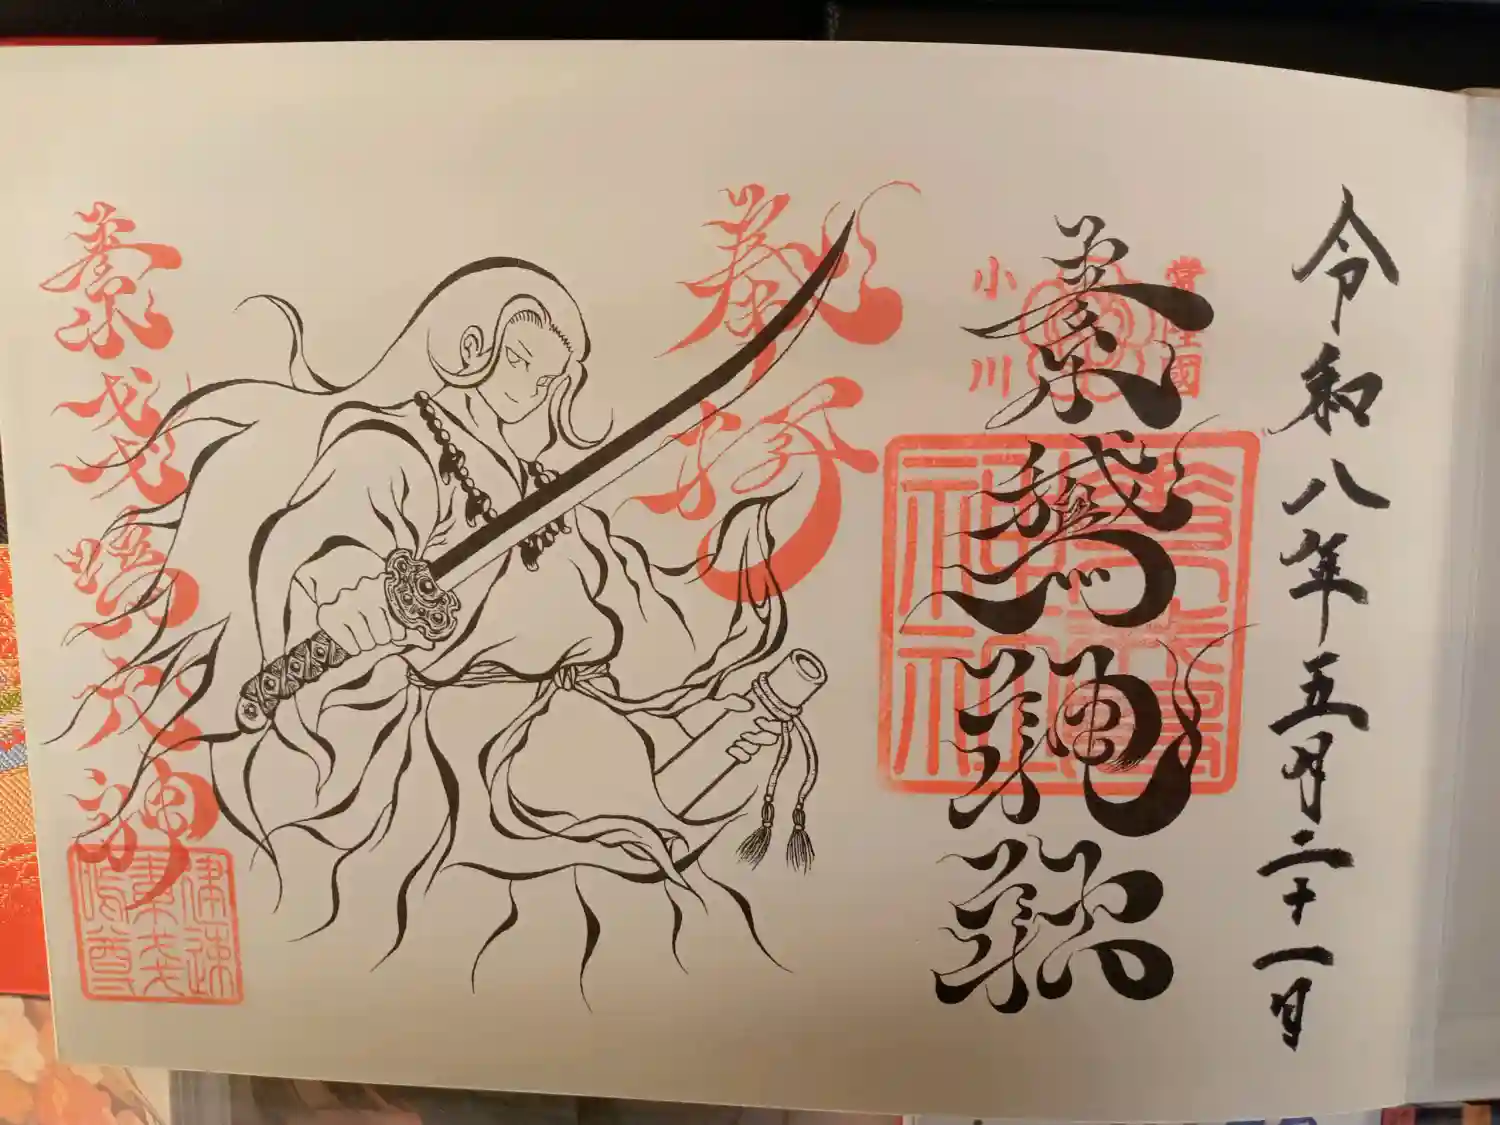 令和八年五月二十一日
常陸國
小川
素鵞神社
素鵞
神社
奉拝
素戔嗚大神
建速
素戔
嗚尊